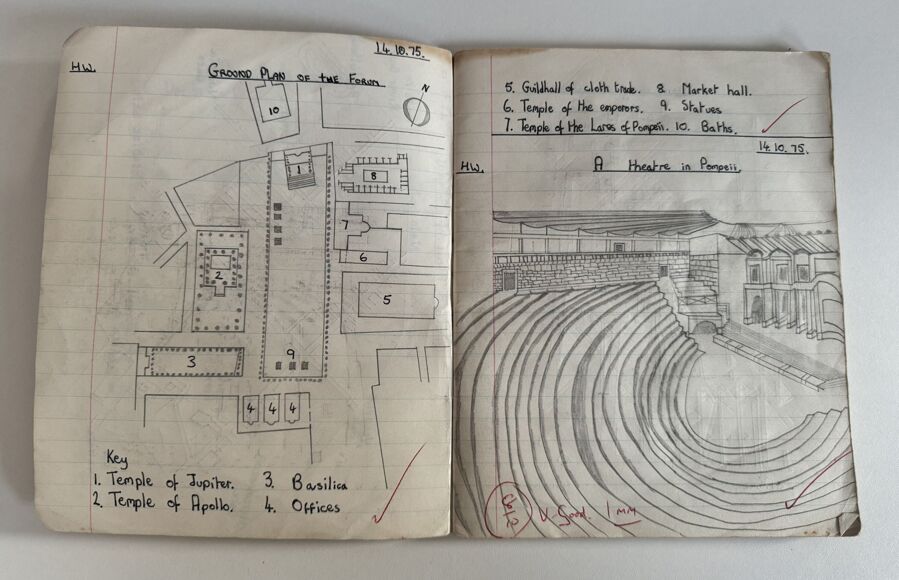 14.10.75.
H.W.
GROUND PLAN OF THE FORUM
N
10
1
8
7
6
2
5
3
9
4 4 4
Key
1. Temple of Jupiter. 3. Basilica
2. Temple of Apollo. 4. Offices
5. Guildhall of cloth trade. 8. Market hall.
6. Temple of the emperors. 9. Statues
7. Temple of the Lares of Pompeii. 10. Baths.
14.10.75.
H.W.
A theatre in Pompeii.
V. Good. 1 MM